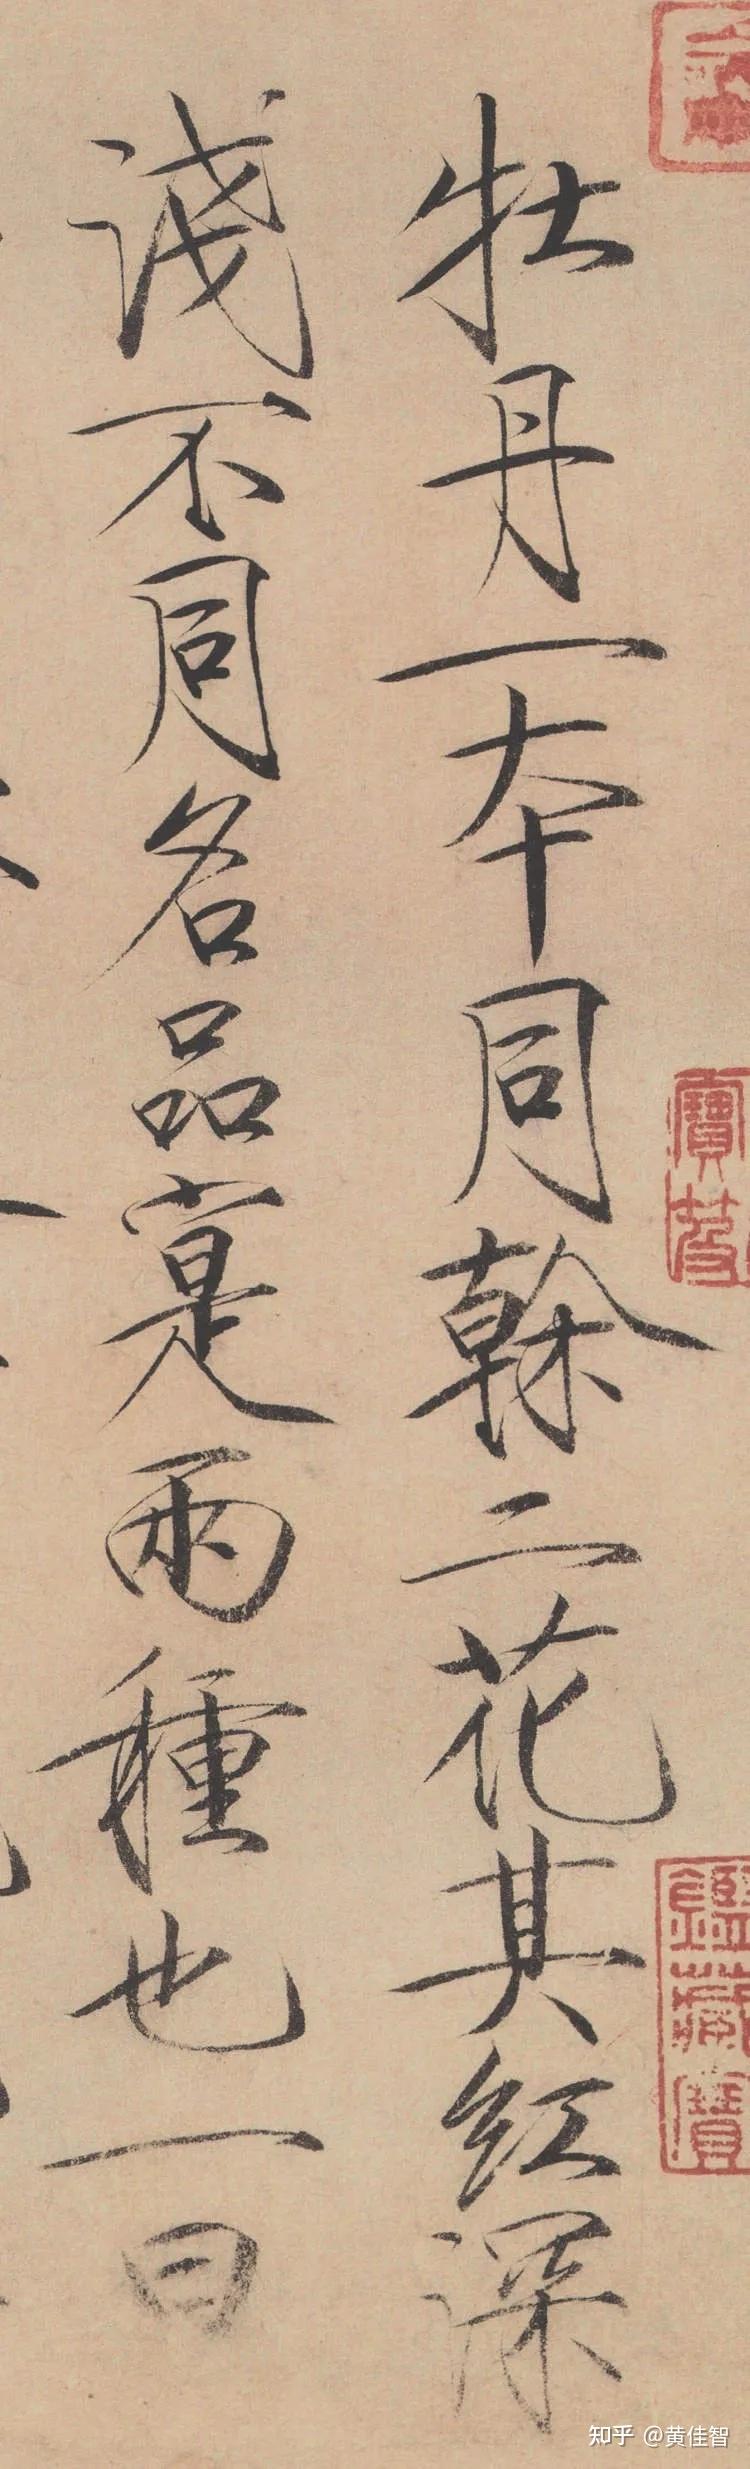 牡丹一本同榦二花其红深
淺不同名品寔兩種也一曰
寶笈
鑑藏寶
知乎 @黄佳智